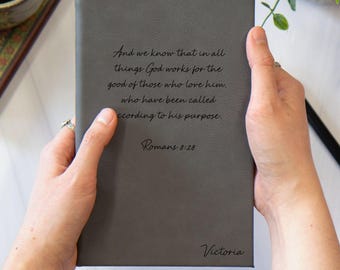 And we know that in all
things God works for the
good of those who love him,
who have been called
according to his purpose.
Romans 8:28
Victoria